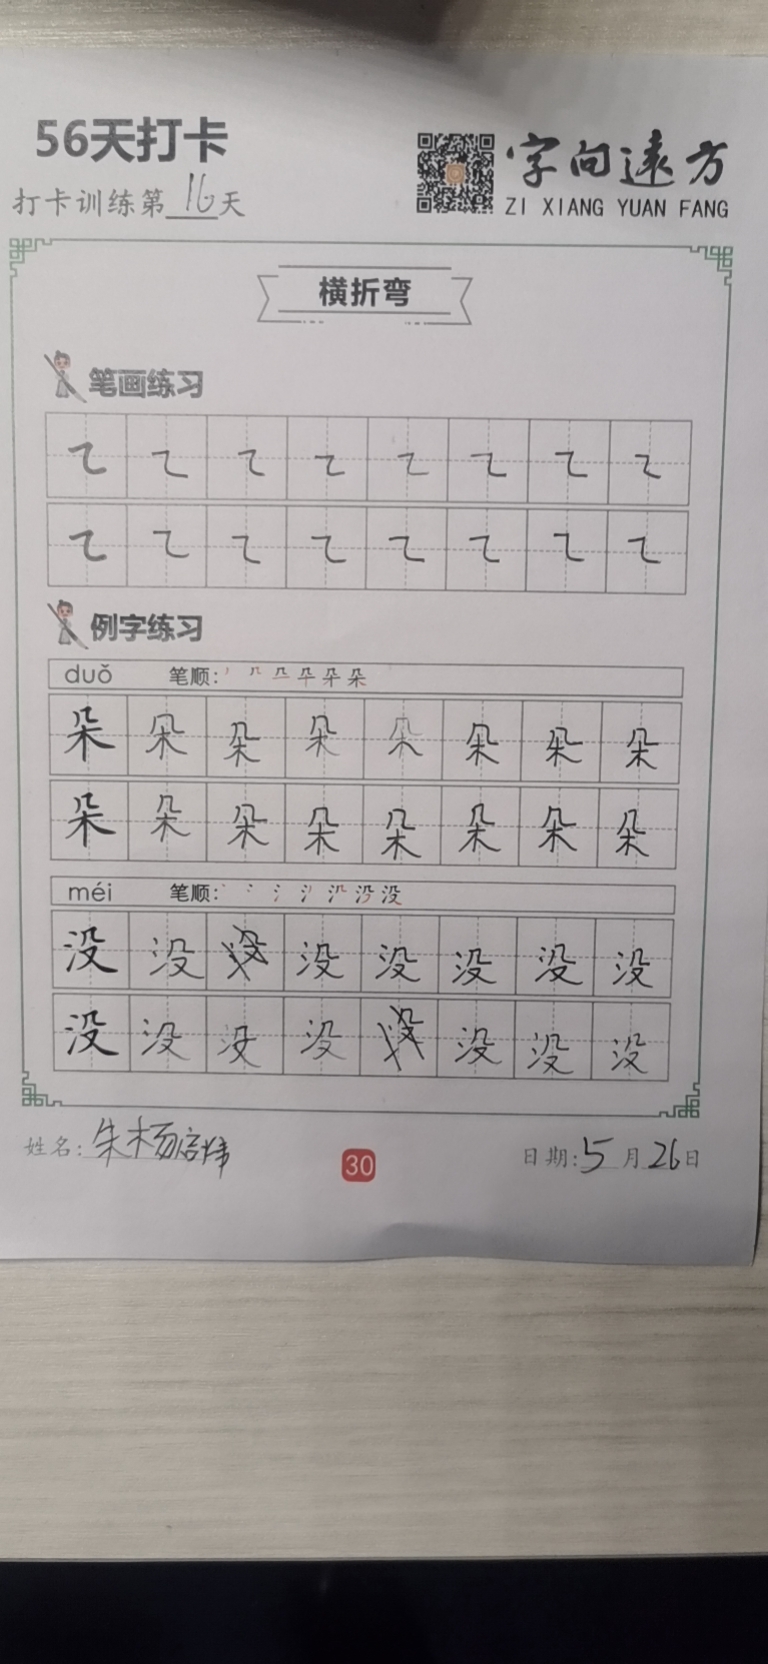 56天打卡
字向远方
ZI XIANG YUAN FANG
打卡训练第16天
横折弯
笔画练习
例字练习
duǒ 笔顺:
朵 朵 朵 朵 朵 朵 朵 朵
朵 朵 朵 朵 朵 朵 朵 朵
méi 笔顺:
没 没 没 没 没 没 没 没
没 没 没 没 没 没 没 没
姓名: 朱杨
30
日期: 5月26日